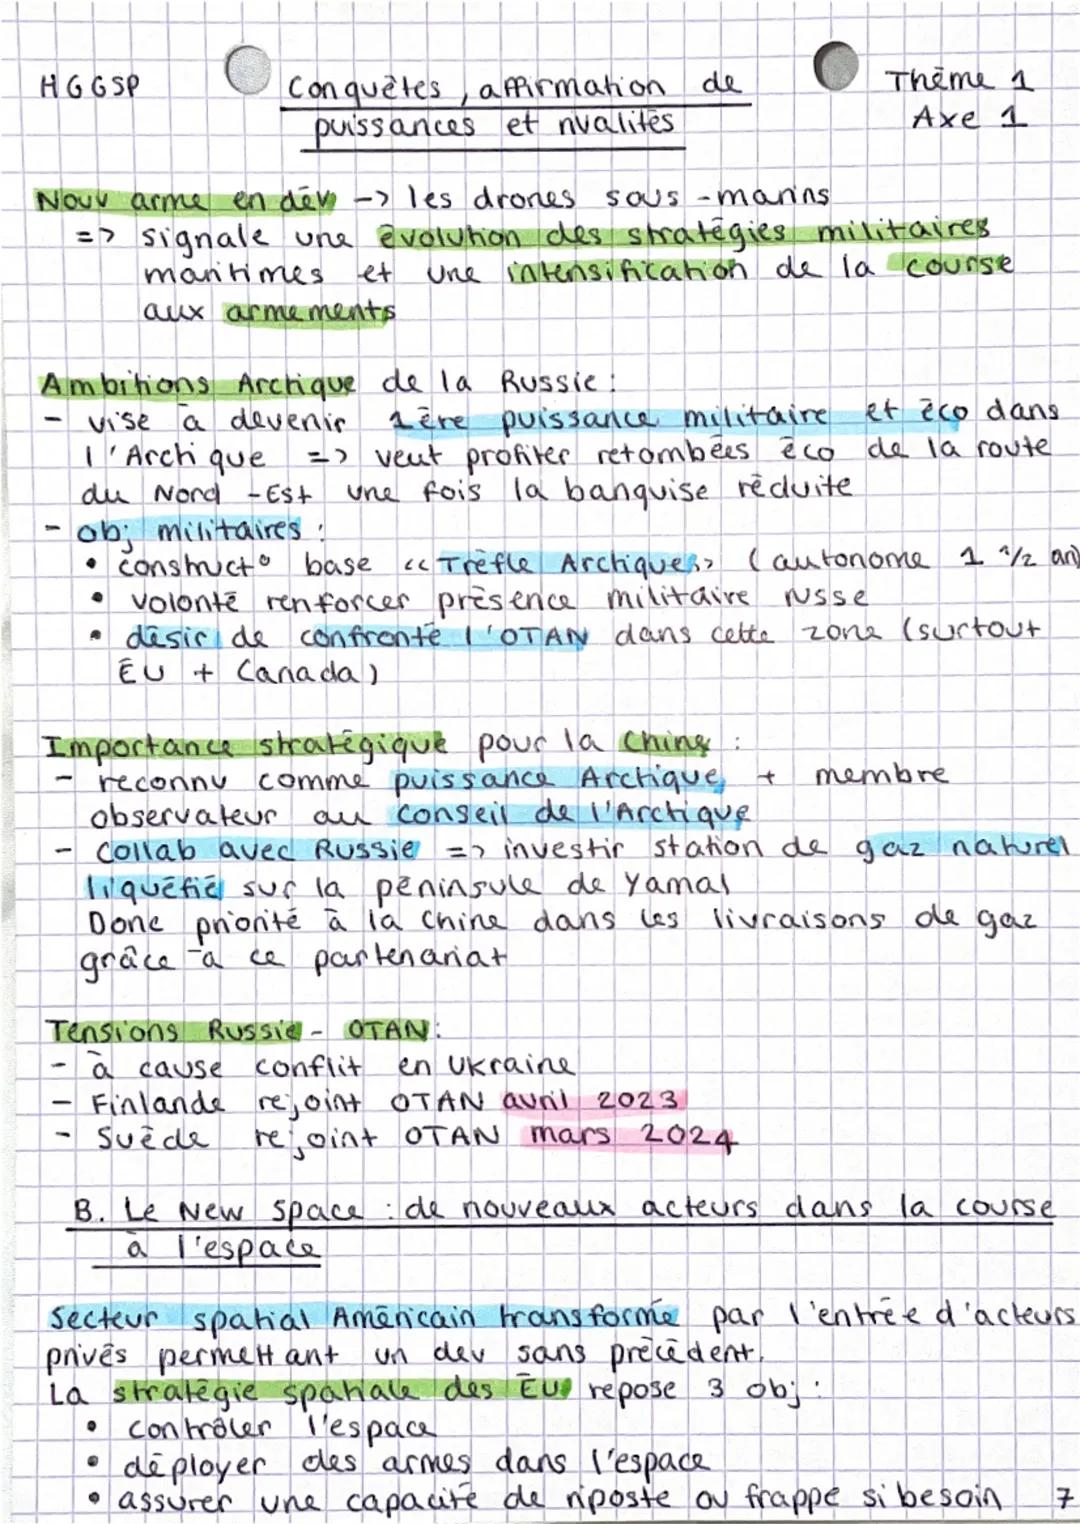 HGGSP
Conquêtes, affirmation de
puissances et rivalités
Thème 1
Axe 1
Nouv arme en dév -> les drones sous-marins
=> signale une évolution des stratégies militaires
maritimes et une intensification de la course
aux armements
Ambitions Arctique de la Russie :
- vise à devenir 1ère puissance militaire et éco dans
l'Arctique => veut profiter retombées éco de la route
du Nord-Est une fois la banquise réduite
- obj militaires :
• construct° base << Trèfle Arctique >> (autonome 1 1/2 an)
• volonté renforcer présence militaire russe
• désir de confronté l'OTAN dans cette zone (surtout
ÉU + Canada)
Importance stratégique pour la Chine :
- reconnu comme puissance Arctique + membre
observateur au Conseil de l'Arctique
- collab avec Russie => investir station de gaz naturel
liquéfié sur la péninsule de Yamal
Donc priorité à la Chine dans les livraisons de gaz
grâce à ce partenariat
Tensions Russie - OTAN :
- à cause conflit en Ukraine
- Finlande rejoint OTAN avril 2023
- Suède rejoint OTAN mars 2024
B. Le New Space : de nouveaux acteurs dans la course
à l'espace
Secteur spatial Américain transformé par l'entrée d'acteurs
privés permettant un dev sans précédent.
La stratégie spatiale des ÉU repose 3 obj :
• contrôler l'espace
• déployer des armes dans l'espace
• assurer une capacité de riposte ou frappe si besoin
7